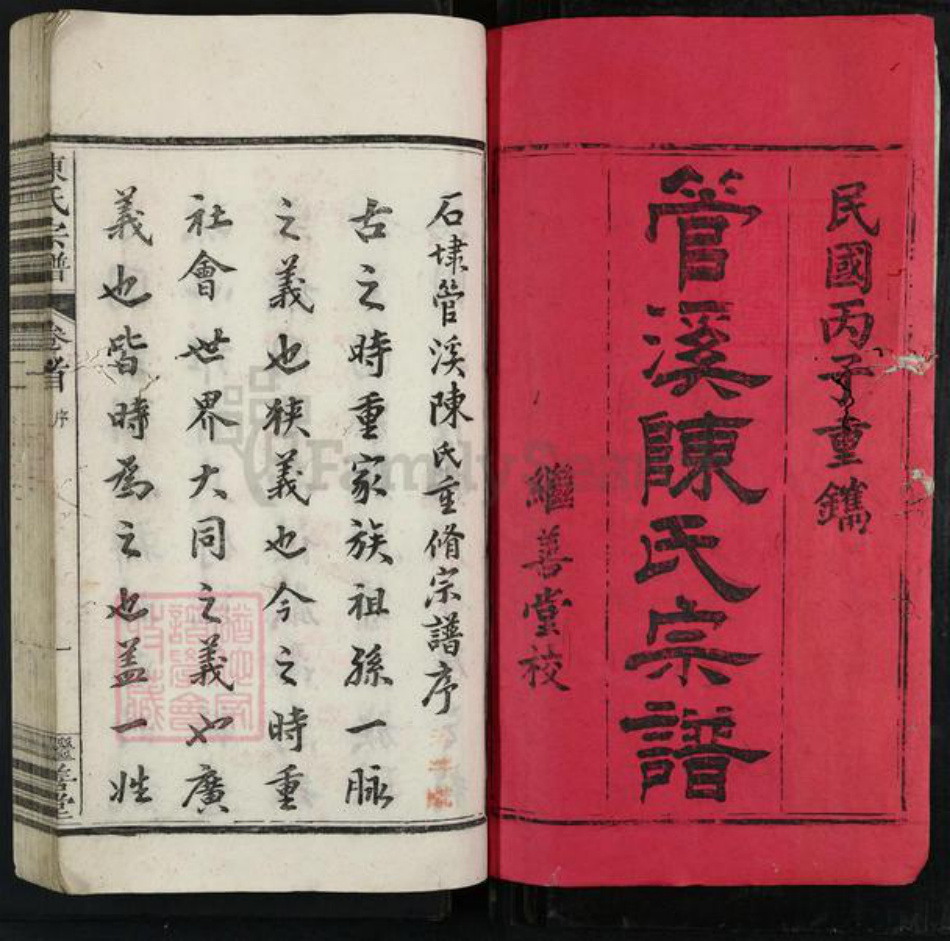 民國丙子重鐫
管溪陳氏宗譜
繼善堂校
石埭管溪陳氏重脩宗譜序
古之時重家族祖孫一脉
之義也狹義也今之時重
社會世界大同之義也廣
義也皆時為之也蓋一姓
陳氏宗譜
卷首
序
一
繼善堂